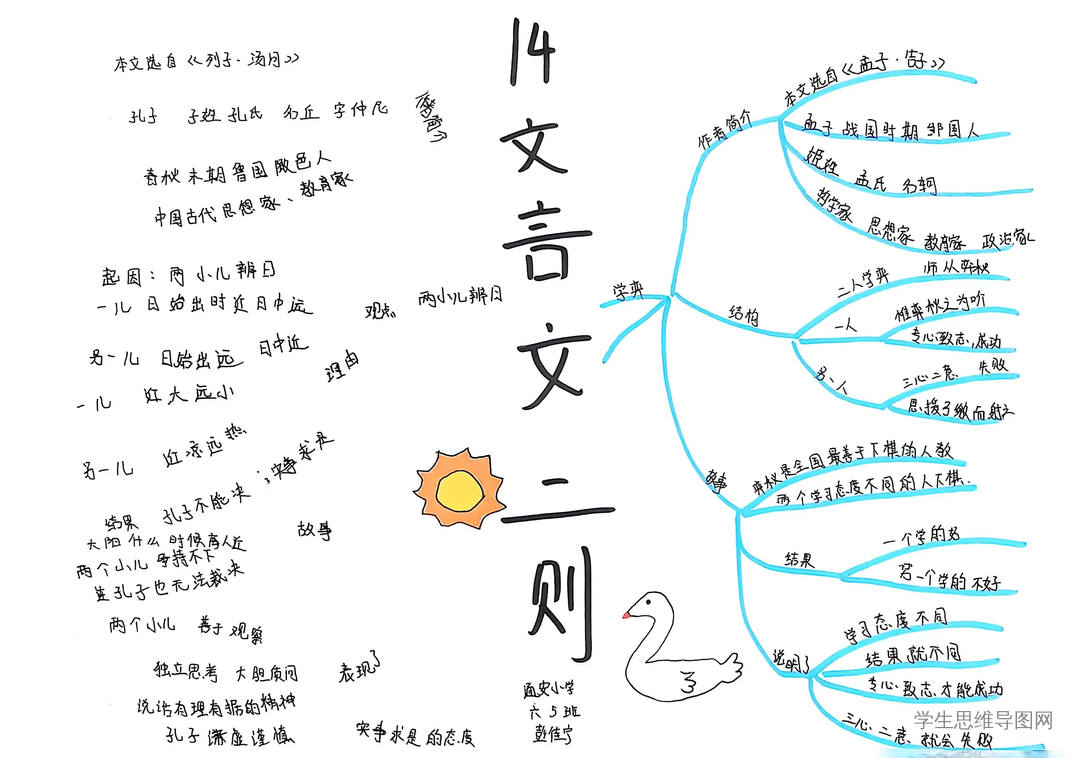 14 文言文二则
本文选自《列子·汤问》
孔子 子姓 孔氏 名丘 字仲尼
作者简介
春秋末期鲁国陬邑人
中国古代思想家、教育家
起因：两小儿辨日
一儿 日始出时近日中远
观点
两小儿辨日
另一儿 日始出远 日中近
理由
一儿 近大远小
另一儿 近凉远热
结果 孔子不能决；实事求是
太阳什么时候离人近
两个小儿争持不下
故事
孔子也无法裁决
两个小儿 善于观察
独立思考 大胆质问
表现了
说话有理有据的精神
孔子 谦虚谨慎
实事求是的态度
学弈
作者简介
本文选自《孟子·告子》
孟子 战国时期 邹国人
姬姓 孟氏 名轲
哲学家 思想家 教育家 政治家
结构
二人学弈 师从弈秋
一人
惟弈秋之为听
专心致志，成功
另一人
三心二意、失败
思援弓缴而射之
故事
弈秋是全国最善于下棋的人教
两个学习态度不同的人下棋.
结果
一个学的好
另一个学的不好
说明了
学习态度不同
结果就不同
专心致志才能成功
三心二意、就会失败
六5班
学生思维导图网